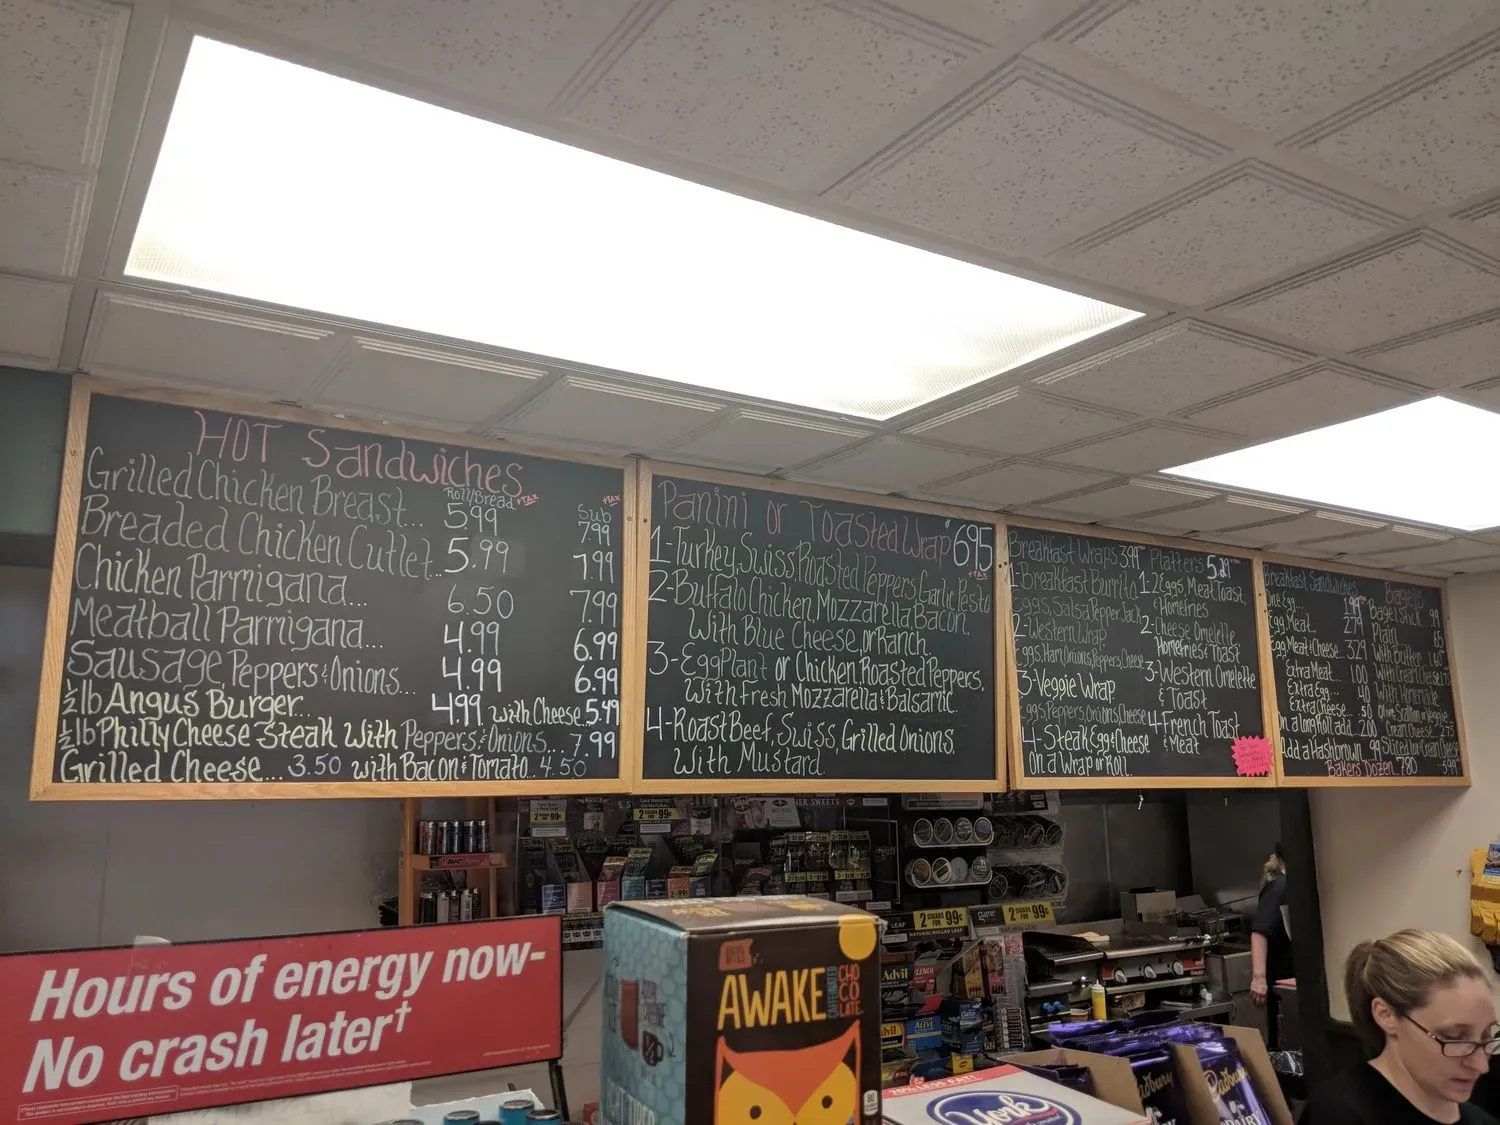 HOT Sandwiches
Roll/Bread +TAX
Sub +TAX
Grilled Chicken Breast... 5.99 7.99
Breaded Chicken Cutlet... 5.99 7.99
Chicken Parmigana... 6.50 7.99
Meatball Parmigana... 4.99 6.99
Sausage, Peppers & Onions... 4.99 6.99
½ lb Angus Burger... 4.99 with Cheese.. 5.49
½ lb Philly Cheese Steak With Peppers & Onions... 7.99
Grilled Cheese... 3.50 with Bacon & Tomato.. 4.50
Panini or Toasted Wrap $6.95
+TAX
1-Turkey, Swiss, Roasted Peppers, Garlic Pesto
2-Buffalo Chicken, Mozzarella, Bacon,
With Blue Cheese, or Ranch.
3-EggPlant or Chicken, Roasted Peppers,
With Fresh Mozzarella & Balsamic.
4-Roast Beef, Swiss, Grilled Onions,
With Mustard.
Breakfast Wraps 3.99
1-Breakfast Burrito
Eggs, Salsa, Pepper Jack
2-Western Wrap
Eggs, Ham, Onions, Peppers, Cheese
3-Veggie Wrap
Eggs, Peppers, Onions, Cheese
4-Steak Egg & Cheese
on a Wrap or Roll.
Platters 5.29
1-2 Eggs, Meat, Toast,
& Homefries
2-Cheese Omelette
Homefries & Toast
3-Western Omelette
& Toast
4-French Toast
& Meat
Breakfast Sandwiches
One Egg... 1.99
Egg, Meat... 2.79
Egg Meat & Cheese... 3.29
Extra Meat... 1.00
Extra Egg... .40
Extra Cheese... .50
On a long Roll add. 2.00
Add a Hashbrown .99
Bagels
Bagel Stick .99
Plain .65
With Butter...
With Cream Cheese
With Homemade
Cream Cheese 2.75
Sliced for Cream Cheese
Bakers Dozen 7.80
Hours of energy now-
No crash later†
BITES
AWAKE
CAFFEINATED
CHO
CO
LATE
2 CIGARS FOR 99¢
2 CIGARS FOR 99¢
game
LEAF
NATURAL ROLLED LEAF
Advil
TYLENOL
Advil
ALEVE
York
Cadbury
Cadbury
DAIRY